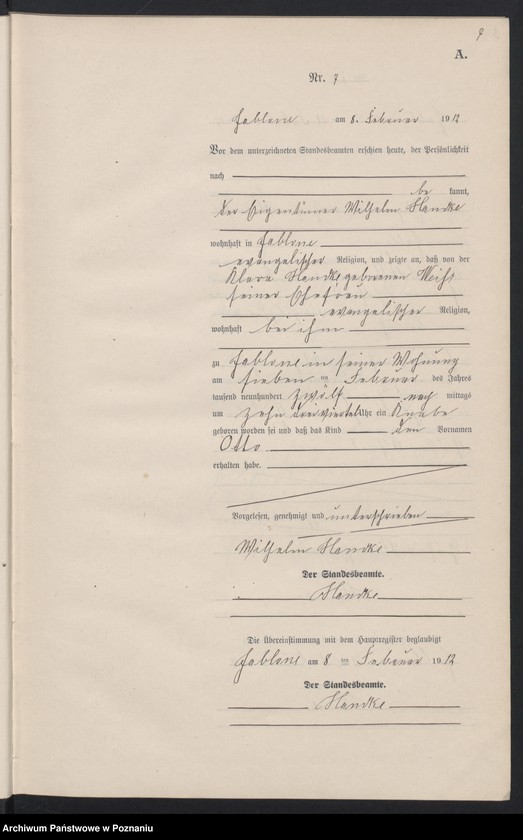 9
A.
Nr. 7
Jablone am 8. Februar 1912
Vor dem unterzeichneten Standesbeamten erschien heute, der Persönlichkeit
nach
be kannt,
der Eigentümer Wilhelm Handke
wohnhaft in Jablone
evangelischer Religion, und zeigte an, daß von der
Klara Handke geborenen Weiß
seiner Ehefrau
evangelischer Religion,
wohnhaft bei ihm
zu Jablone in seiner Wohnung
am sieben ten Februar des Jahres
tausend neunhundert zwölf nach mittags
um zehn dreiviertel Uhr ein Knabe
geboren worden sei und daß das Kind den Vornamen
Otto
erhalten habe.
Vorgelesen, genehmigt und unterschrieben
Wilhelm Handke
Der Standesbeamte.
Handke
Die Übereinstimmung mit dem Hauptregister beglaubigt
Jablone am 8 ten Februar 1912
Der Standesbeamte.
Handke
Archiwum Państwowe w Poznaniu